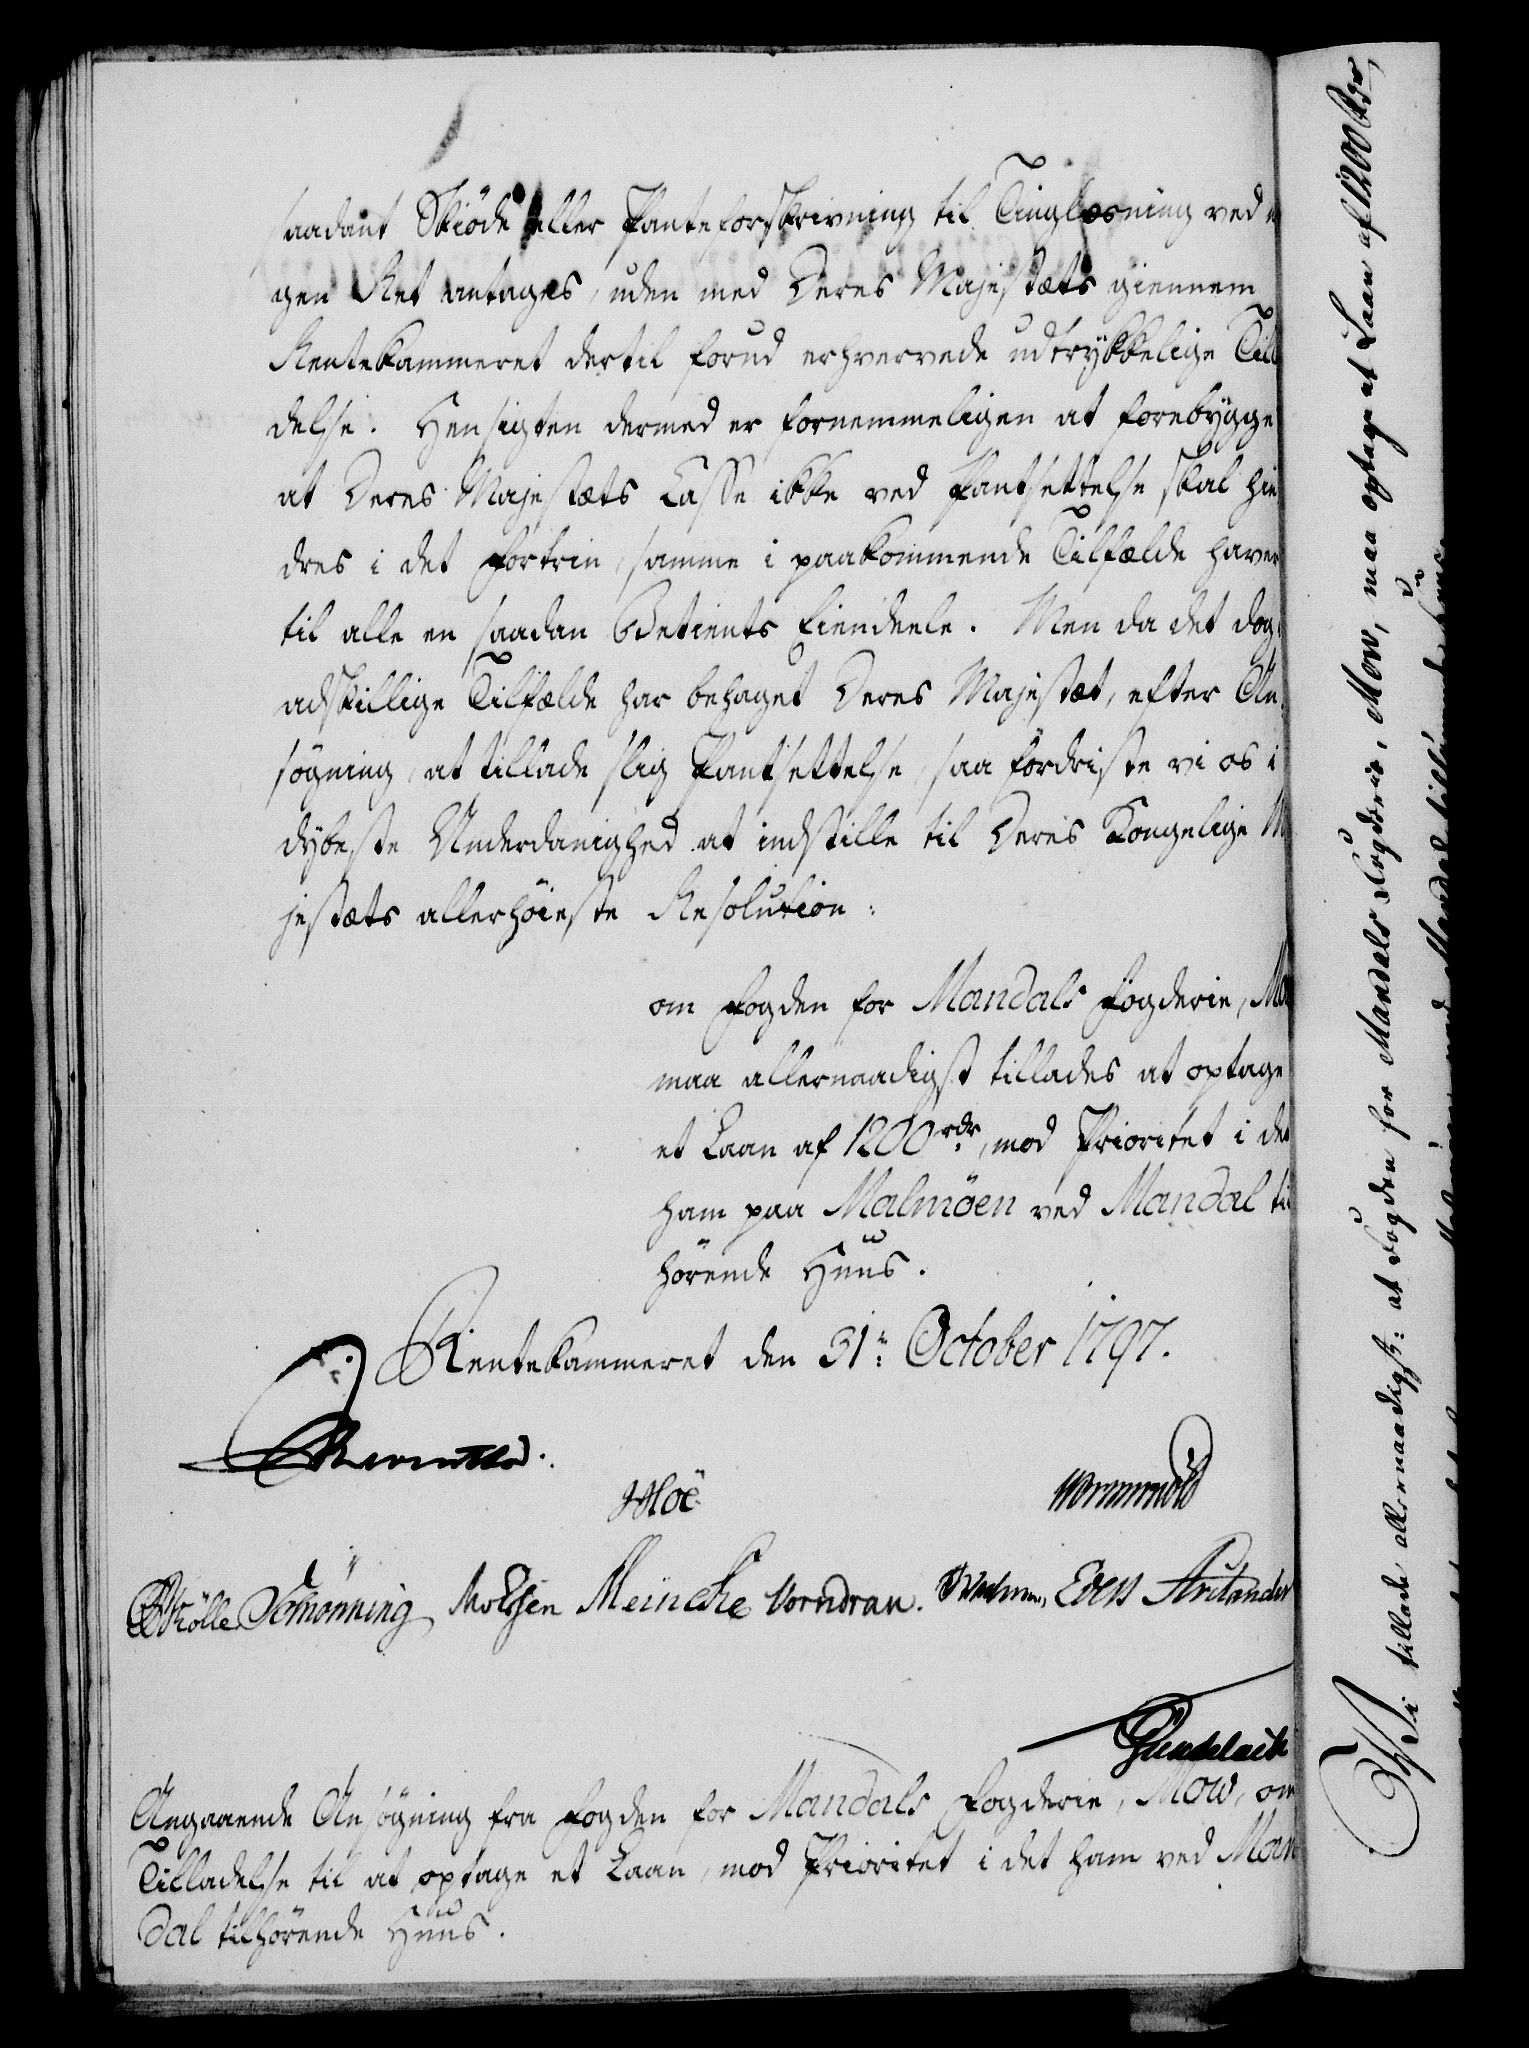 saadant Skiöde eller Panteforskrivning til Tinglæsning ved
gen Ret antages, uden med Deres Majestæts giennem
Rentekammeret dertil forud erhvervede udtrykkelige Till
delse. Hensigten dermed er fornemmeligen at forebygge
at Deres Majestæts Casse ikke ved Pantsettelse skal hin
dres i det Fortrin, samme i paakommende Tilfælde haver
til alle en saadan Betients Eiendeele. Men da det dog
adskillige Tilfælde har behaget Deres Majestæt, efter An
søgning, at tillade slig Pantsettelse, saa fordriste vi os i
dybeste Underdanighed at indstille til Deres Kongelige M
jestæts allerhöieste Resolution:
om Fogden for Mandals Fogderie, Mo
maa allernaadigst tillades at optage
et Laan af 1200 rdr, mod Prioritet i det
ham paa Malmöen ved Mandal til
hörende Huus.
Rentekammeret den 31te October 1797.
Reventlo.
Hoë Wormskiold
Schönning Meincke Vorndran. Evers
Gundelach
Angaaende Ansøgning fra Fogden for Mandals Fogderie, Mow, om
Tilladelse til at optage et Laan, mod Prioritet i det ham ved Man
dal tilhörende Huus.
Vi tillade allernaadigst: at Fogden for Mandals Fogderie, Mow, maa optage et Laan af 1200 Rdr,